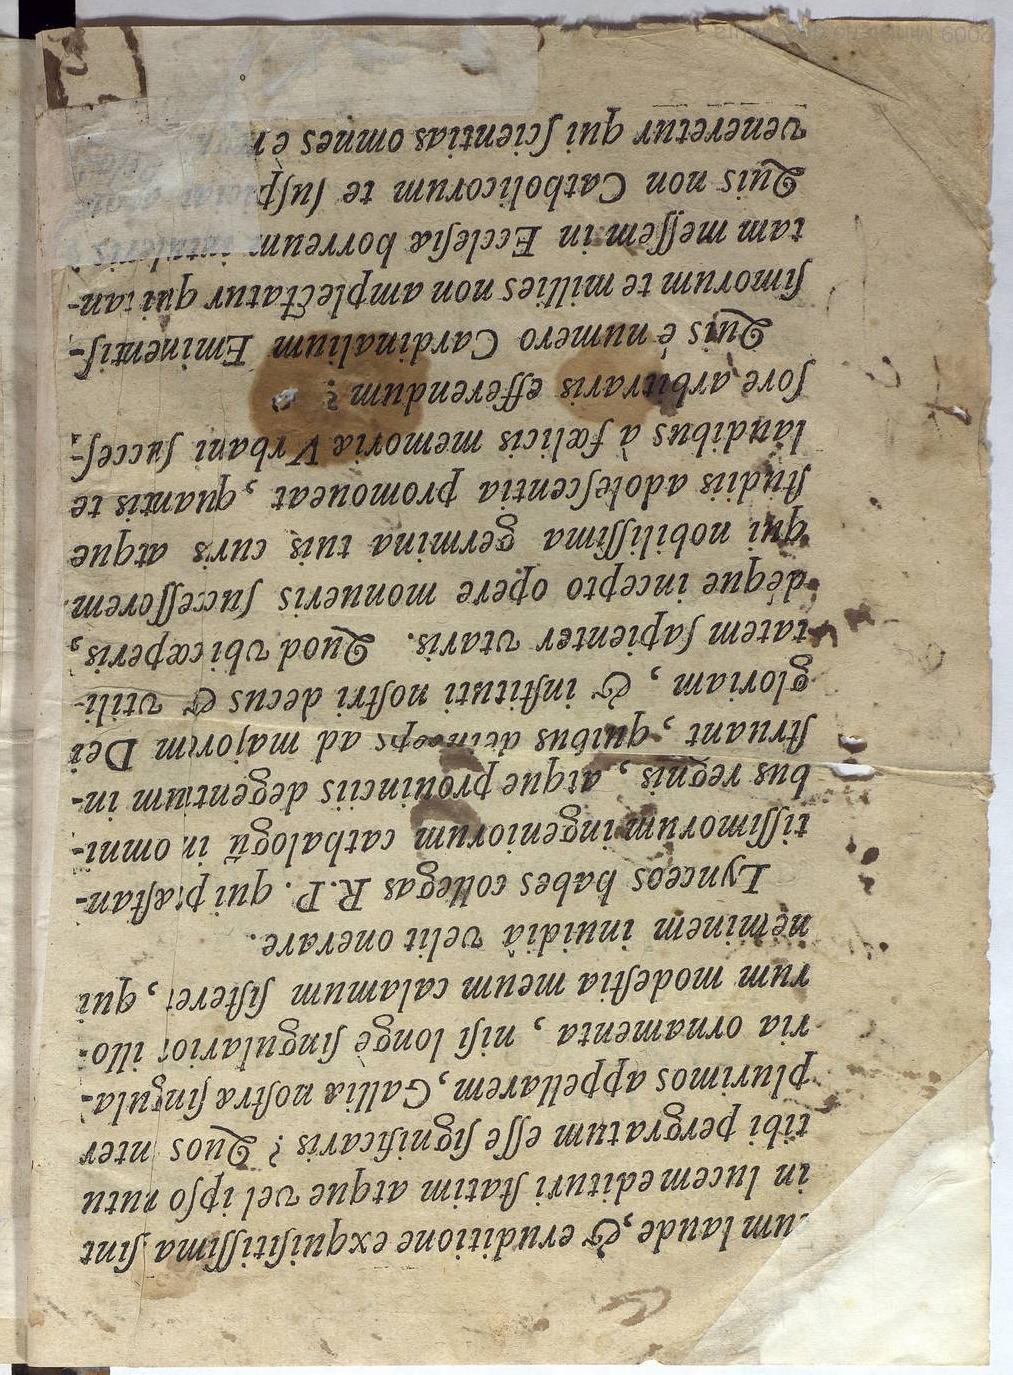 um laude, & eruditione exquisitissima sint
in lucem edituri statim atque vel ipso nutu
tibi pergratum esse significaris? Quos inter
plurimos appellarem, Galliæ nostra singula-
ria ornamenta, nisi longè singularior illo-
rum modestia meum calamum sisteret, qui
neminem inuidiâ velit onerare.
Lynceos habes collegas R.P. qui præstan-
tissimorum ingeniorum cathalogũ in omni-
bus regnis, atque prouinciis degentium in-
struant, quibus deinceps ad majorem Dei
gloriam, & instituti nostri decus & vtili-
tatem sapienter vtaris. Quod vbi cœperis,
deque incepto opere monueris successorem
qui nobilissima germina tuis curis atque
studiis adolescentia promoueat, quantis te
laudibus à fœlicis memoriæ Vrbani succes-
sore arbitraris efferendum?
Quis è numero Cardinalium Eminentis-
simorum te millies non amplectatur qui tan-
tam messem in Ecclesiæ horreum intuleris?
Quis non Catholicorum te susp
veneretur qui scientias omnes